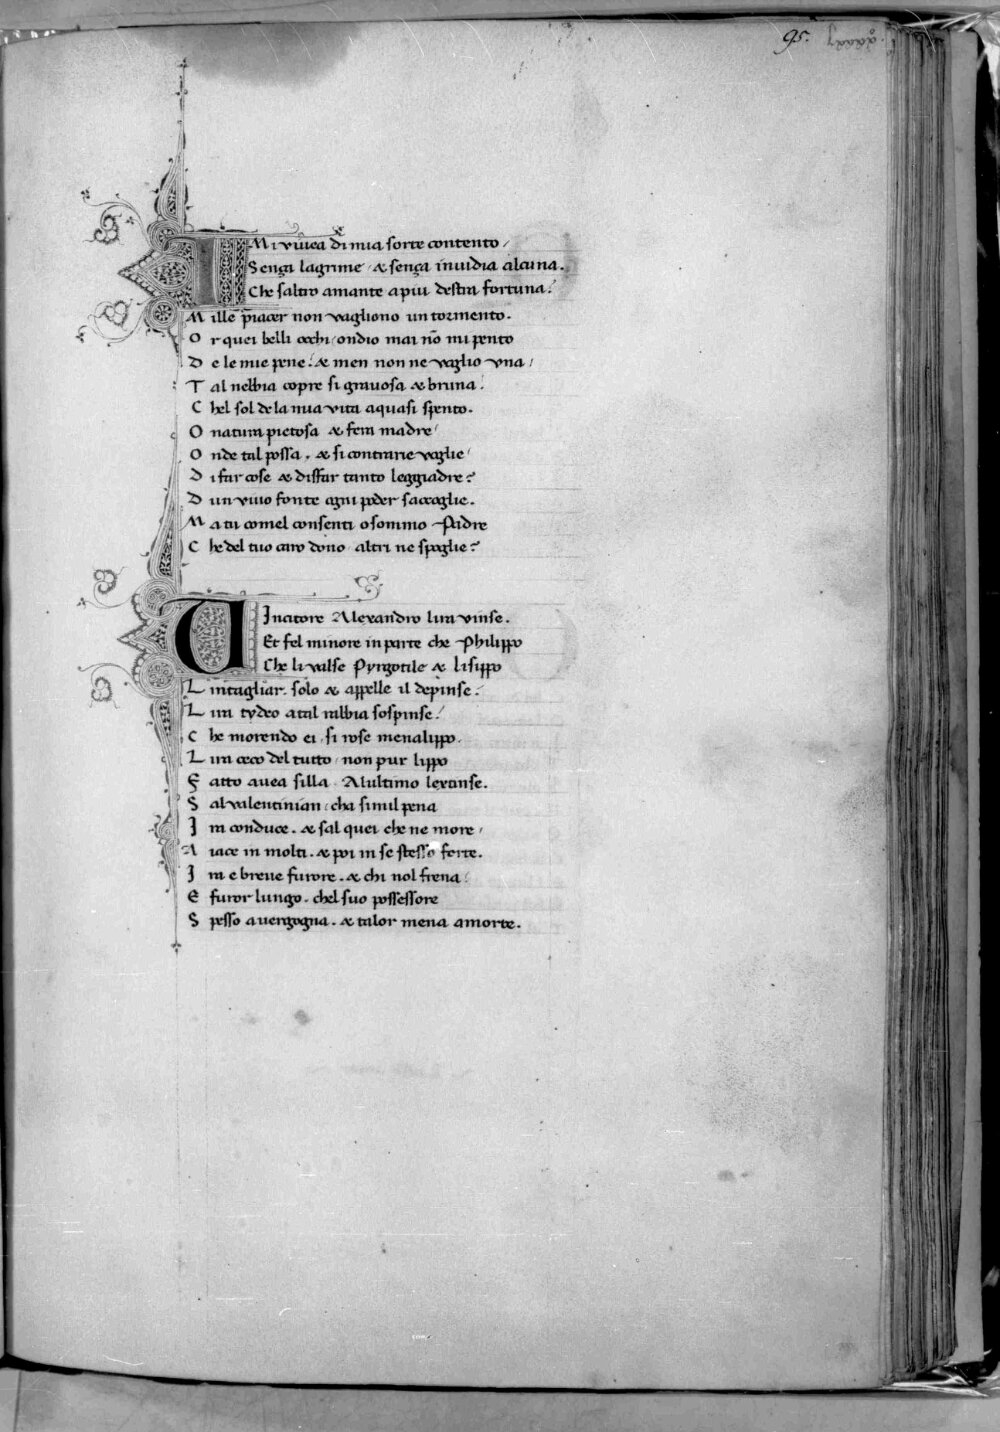 95.
I Mi viuea di mia sorte contento
Senza lagrime et senza inuidia alcuna.
Che saltro amante a piu destra fortuna:
Mille piacer non vagliono un tormento.
Or quei belli occhi ondio mai nõ mi pento
De le mie pene: et men non ne voglio vna
Tal nebbia copre si grauosa et bruna:
Chel sol de la mia vita a quasi spento.
O natura pietosa et fera madre
Onde tal possa. et si contrarie voglie
Di far cose et disfar tanto leggiadre?
Dun viuo fonte ogni poder saccoglie.
Ma tu comel consenti o sommo Padre
Che del tuo caro dono altri ne spoglie?
VIncitore Alexandro lira vinse.
Et fel minore in parte che Philippo
Che li valse Pyrgotile et lisippo
Lintagliar. solo et appelle il depinse:
Lira tydeo a tal rabbia sospinse:
Che morendo ei si rose menalippo.
Lira ceco del tutto non pur lippo
Fatto auea silla. Alultimo lextinse.
Sal valentinian cha simil pena
Ira conduce. et sal quei che ne more
Aiace in molti. et poi in se stesso forte.
Ira e breue furore. et chi nol frena:
E furor lungo. chel suo possessore
Spesso a uergogna. et talor mena a morte.